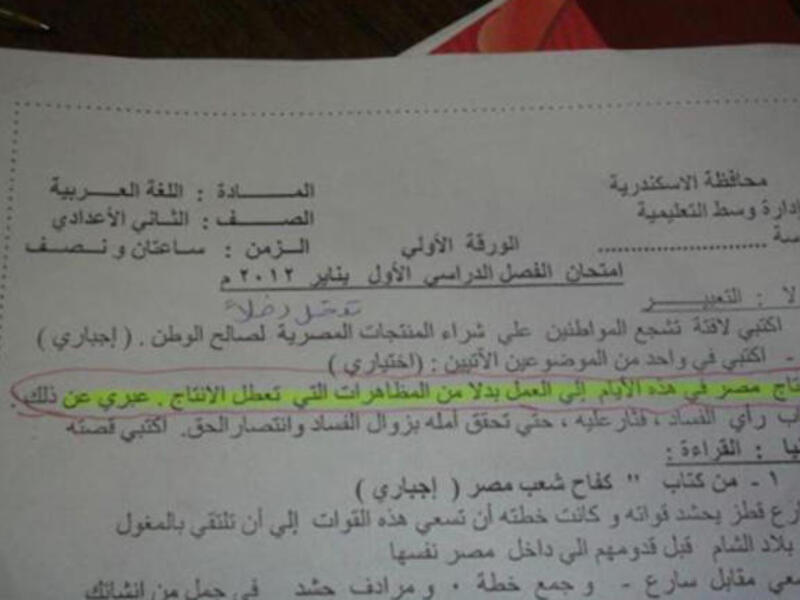 محافظة الاسكندرية
إدارة وسط التعليمية
المـــادة : اللغة العربية
الصـــف : الثاني الأعدادي
الزمن : ساعتان و نصف
الورقة الأولي
امتحان الفصل الدراسي الأول يناير ٢٠١٢ م
التعبيــــر
اكتبي لافتة تشجع المواطنين علي شراء المنتجات المصرية لصالح الوطن . ( إجباري )
- اكتبي في واحد من الموضوعين الآتيين : (اختياري )
تاج مصر في هذه الأيام إلي العمل بدلا من المظاهرات التي تعطل الانتاج . عبري عن ذلك .
اب رأي الفساد ، فثار عليه ، حتي تحقق أمله بزوال الفساد وانتصار الحق. اكتبي قصته
يا : القراءة :
١ - من كتاب " كفاح شعب مصر ( إجباري )
ارع قطز يحشد قواته و كانت خطته أن تسعي هذه القوات إلي أن تلتقي بالمغول
بلاد الشام قبل قدومهم الي داخل مصر نفسها
عي مقابل سارع - و جمع خطة . و مرادف حشد في جمل من انشائك